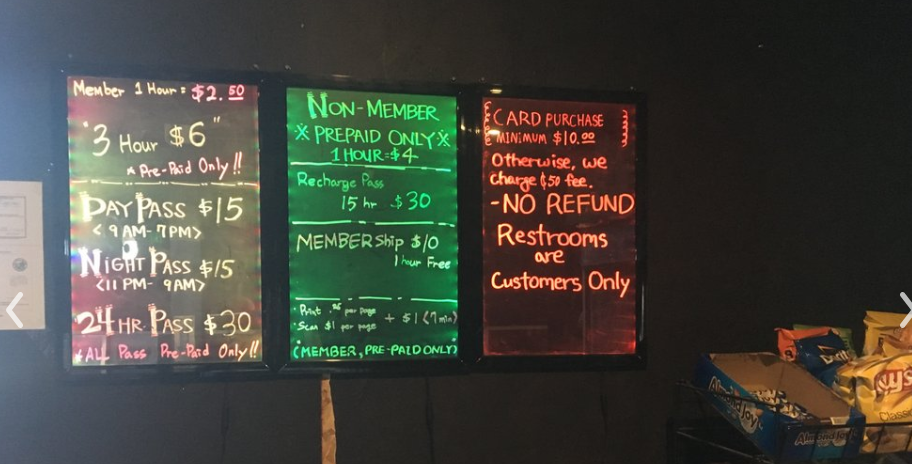 Member 1 Hour = $2.50
"3 Hour $6"
* Pre-Paid Only!!
DAY PASS $15
<9AM-7PM>
NIGHT PASS $15
<11PM-9AM>
24HR PASS $30
*ALL Pass Pre-Paid Only!!
NON-MEMBER
※ PREPAID ONLY ※
1 HOUR=$4
Recharge Pass
15 hr $30
MEMBERship $10
1 hour Free
Print per page
Scan $1 per page + $1 (7min)
(MEMBER, PRE-PAID ONLY)
CARD PURCHASE
MINIMUM $10.00
Otherwise, we
charge ¢50 fee.
-NO REFUND
Restrooms
are
Customers Only
Almond Joy
Almond Joy
Lay's
Classic